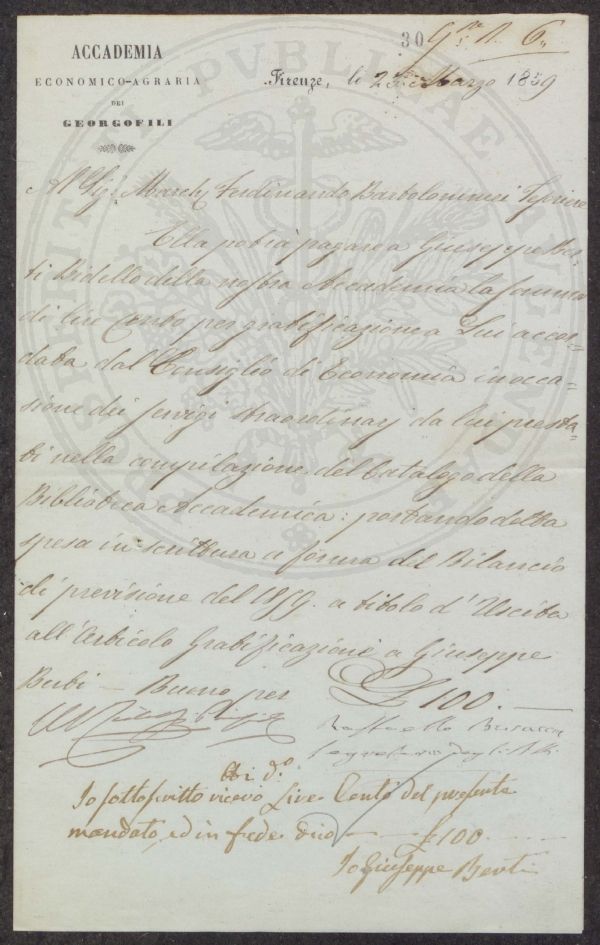 ACCADEMIA
ECONOMICO-AGRARIA
DEI
GEORGOFILI
30
N. 6
Firenze, lo 25 Marzo 1859
Al Sig.r March. Ferdinando Bartolommei Tesoriere
Ella potrà pagare a Giuseppe Ber-
ti Bidello della nostra Accademia la somma
di lire Cento per gratificazione a Lui accor-
data dal Consiglio di Economia in occa-
sione dei servigi straordinarj da lui presta-
ti nella compilazione del Catalogo della
Biblioteca Accademica: portando detta
spesa in scrittura a forma del Bilancio
di previsione del 1859. a titolo d'Uscita
all'Articolo Gratificazione a Giuseppe
Berti — Buono per £ 100. —
Raffaello Busacca
Segretario degli Atti
Adi d.o
Io sottoscritto ricevo Lire Cento del presente
mandato, ed in fede dico — £ 100 —
Io Giuseppe Berti
PROSPERITATI PVBLICAE AVGENDAE